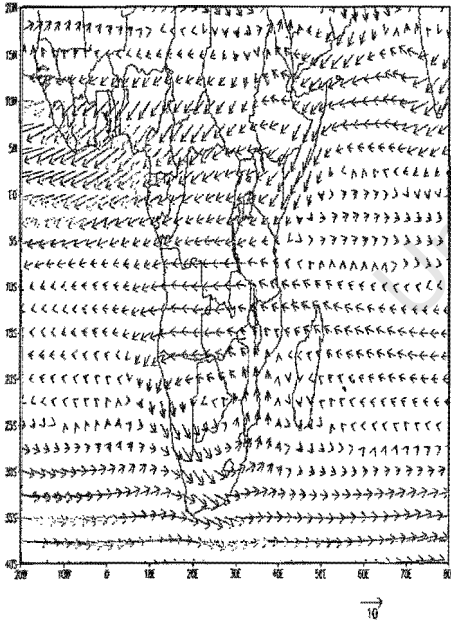 20N
15N
10N
5N
EQ
5S
10S
15S
20S
25S
30S
35S
40S
20W 10W 0 10E 20E 30E 40E 50E 60E 70E 80
10